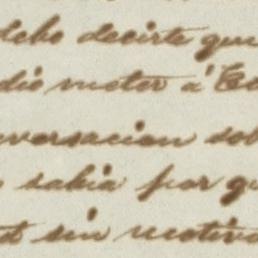 debo decirte que
dio meter á
versacion sob
sabia por qu
sin motivo